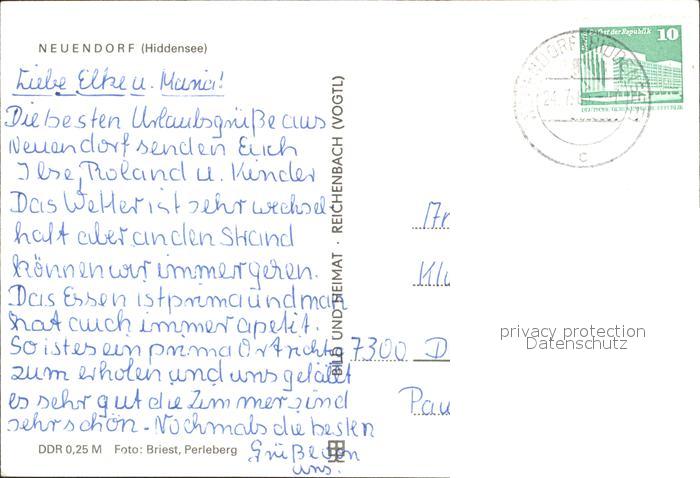 NEUENDORF (Hiddensee)
Liebe Elke u. Maria!
Die besten Urlaubsgrüße aus
Neuendorf senden Euch
Ilse, Roland u. Kinder
Das Wetter ist sehr wechsel-
haft aber an den Strand
können wir immer gehen.
Das Essen ist prima und man
hat auch immer apetit.
So ist es ein prima Ort
zum erholen und uns gefällt
es sehr gut die Zimmer sind
sehr schön. Nochmals die besten
Grüße von
uns.
DDR 0,25 M Foto: Briest, Perleberg
BILD UND HEIMAT · REICHENBACH (VOGTL)
Palast der Republik 10
DEUTSCHE DEMOKRATISCHE REPUBLIK
NEUENDORF (HIDDENSEE)
24.7.
c
Kl
7300 D
Pau
privacy protection
Datenschutz